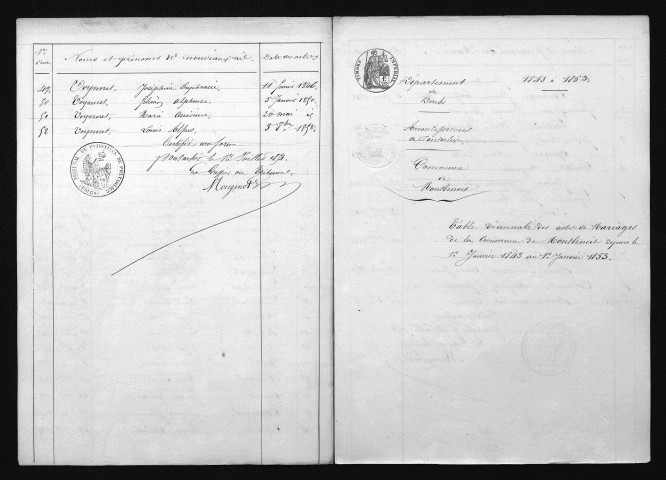 Nos d'ordre
Noms et prénoms des nouveaux nés
Date des actes
49. Voynnet, Joséphine 11 1846.
50 Voynnet, Alphonse. 5 Janvier 1850.
51 Voynnet, Marie 20 mai id
52 Voynnet, Louis 3 8bre 1852.
Certifié conforme
Pontarlier le 1er Juillet 1853
Le Greffier du Tribunal
TRIBUNAL DE PONTARLIER (DOUBS)
TIMBRE IMPÉRIAL
1843 à 1853.
Département
du
Doubs
Arrondissement
de Pontarlier
Commune
de
Montbenoit
Table décennale des actes de Mariages
de la Commune de Montbenoit depuis le
1er Janvier 1843 au 1er Janvier 1853.